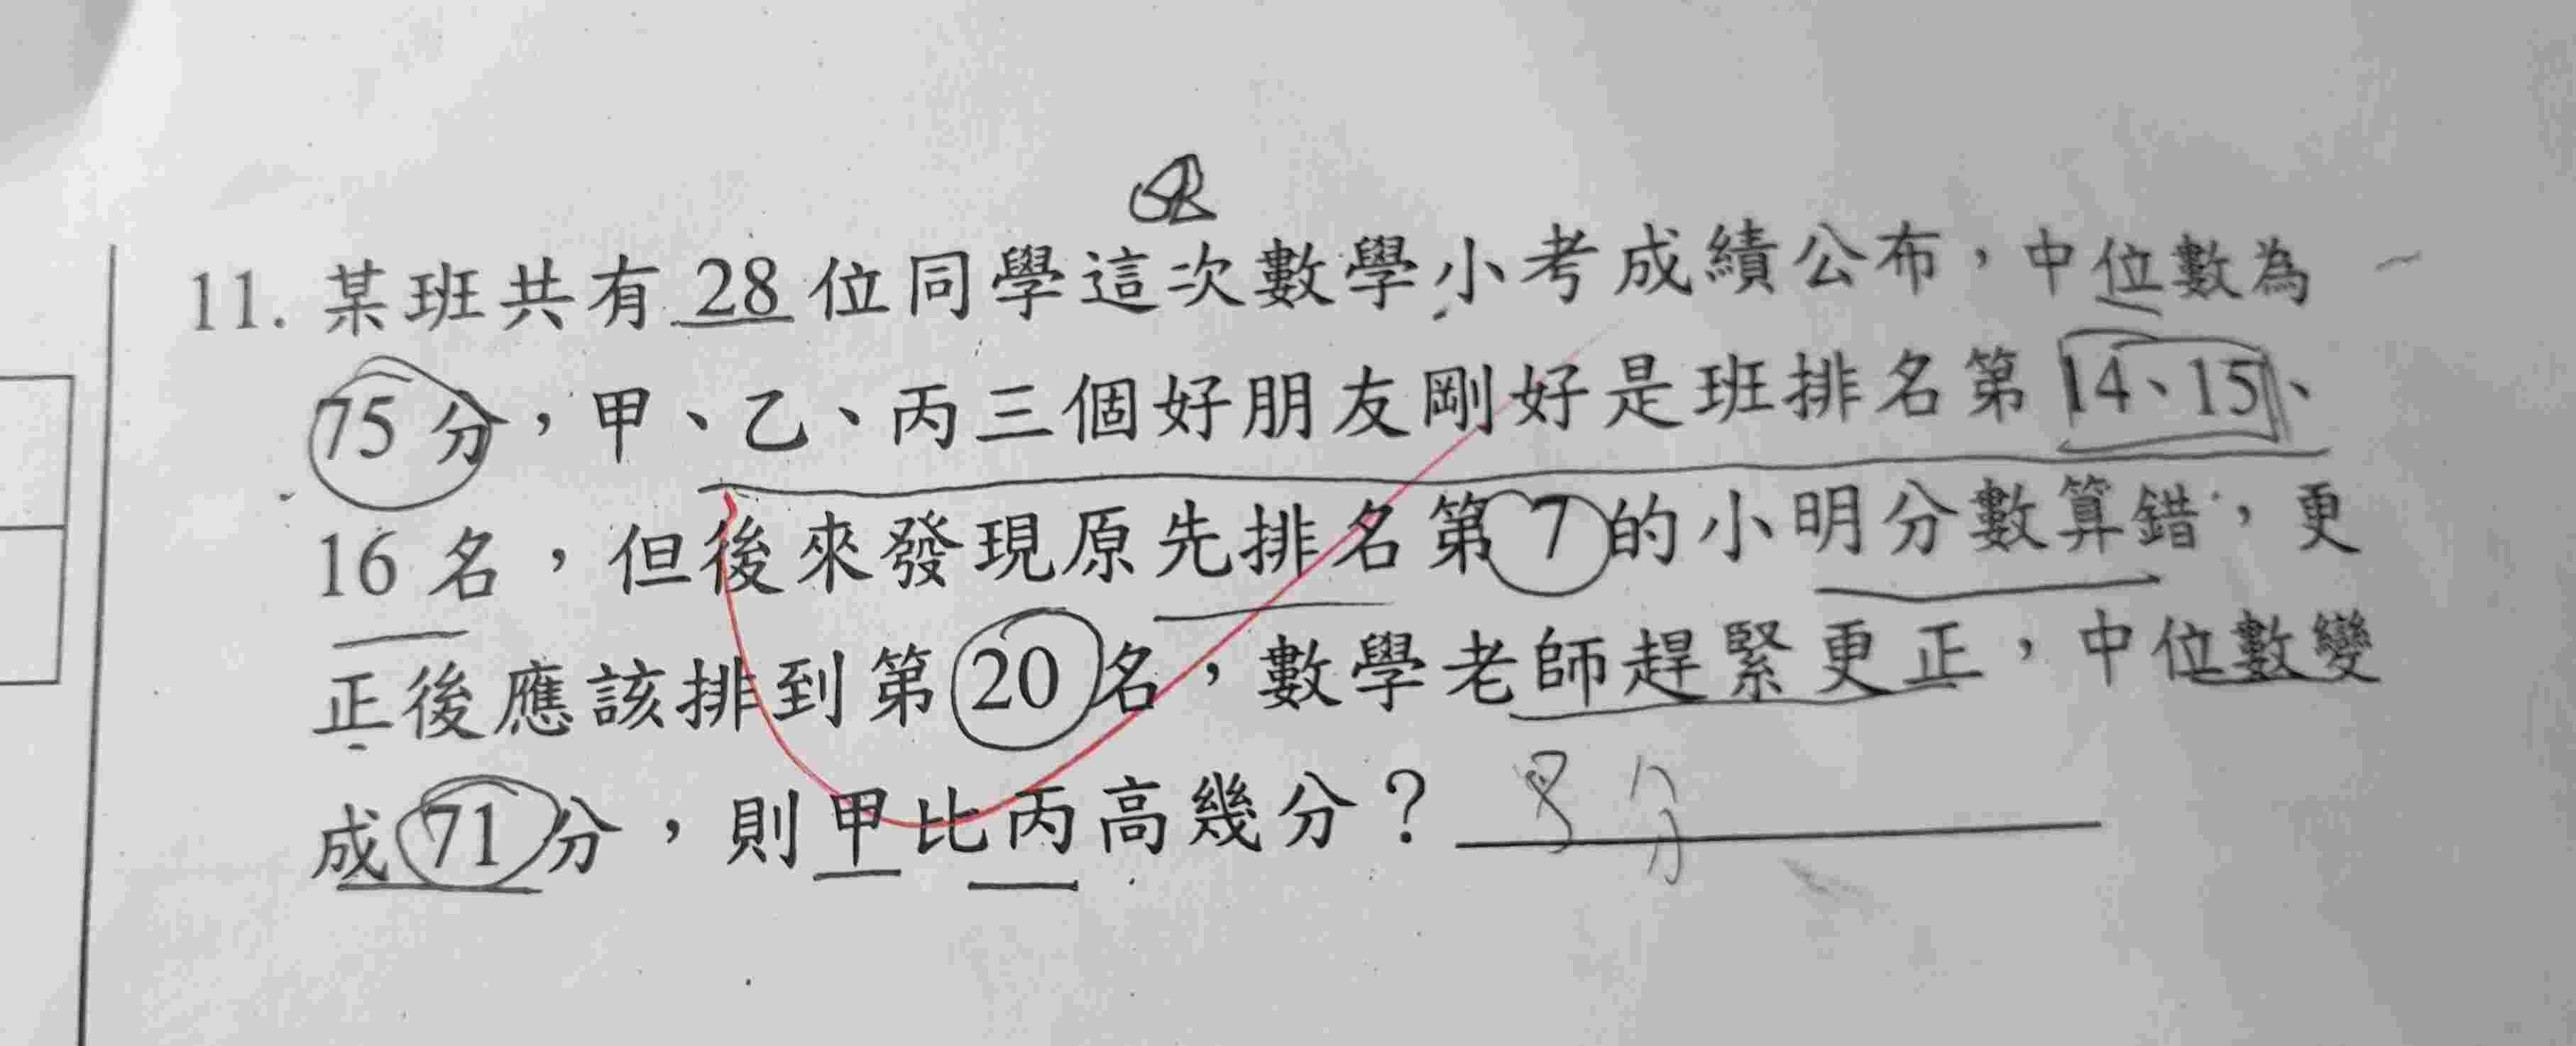 11. 某班共有 28 位同學這次數學小考成績公布，中位數為
75 分，甲、乙、丙三個好朋友剛好是班排名第 14、15、
16 名，但後來發現原先排名第 7 的小明分數算錯，更
正後應該排到第 20 名，數學老師趕緊更正，中位數變
成 71 分，則甲比丙高幾分？ 8 分